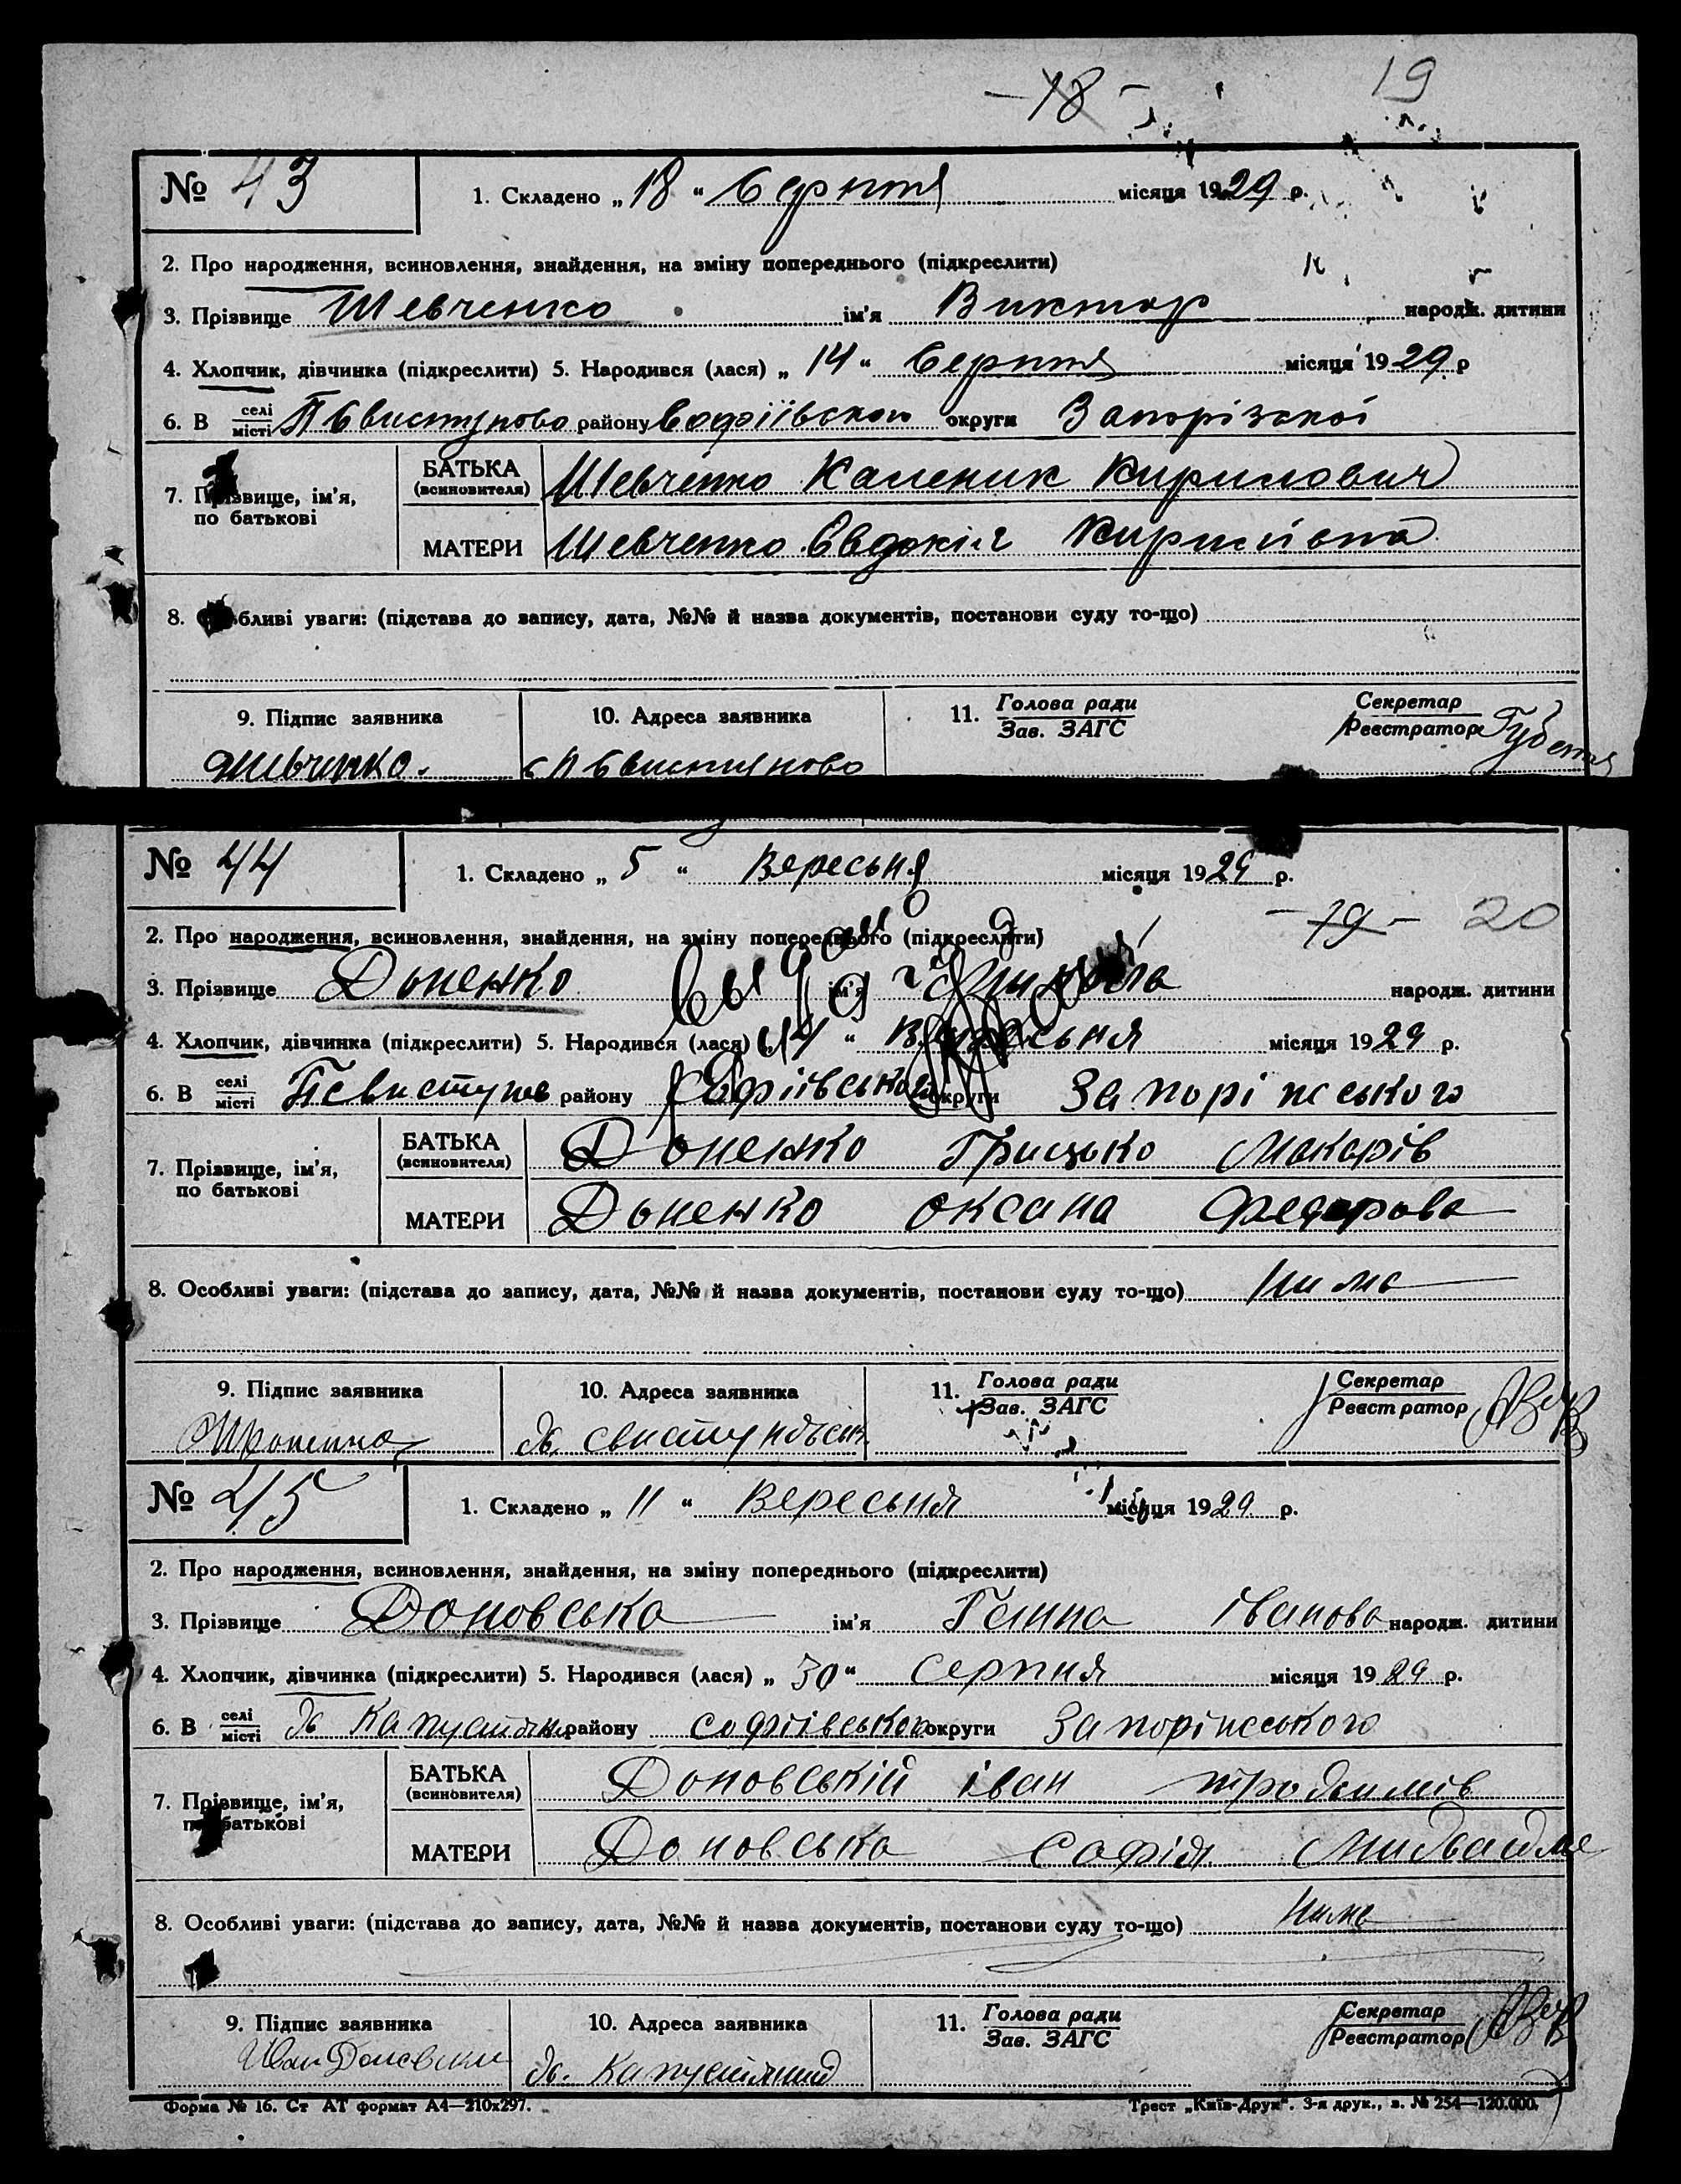 - 18 - 19
№ 43 1. Складено „ 18 “ Серпня місяця 1929 р.
2. Про народження, всиновлення, знайдення, на зміну попереднього (підкреслити)
3. Прізвище Шевченко ім'я Виктор народж. дитини
4. Хлопчик, дівчинка (підкреслити) 5. Народився (лася) „ 14 “ Серпня місяця 1929 р
6. В селі місті П Свистуново району Софіївского округи Запорізкої
7. Прізвище, ім'я, по батькові БАТЬКА (всиновителя) Шевченко Каленик Кирилович
МАТЕРИ Шевченко Євдокія
8. Особливі уваги: (підстава до запису, дата, №№ й назва документів, постанови суду то-що)
9. Підпис заявника 10. Адреса заявника 11. Голова ради Зав. ЗАГС Секретар Реєстратор
Шевченко. с П Свистуново
№ 44 1. Складено „ 5 “ Вересьня місяця 1929 р.
- 19 - 20
2. Про народження, всиновлення, знайдення, на зміну попереднього (підкреслити)
3. Прізвище Доненко ім'я народж. дитини
4. Хлопчик, дівчинка (підкреслити) 5. Народився (лася) „ 4 “ Вересьня місяця 1929 р.
6. В селі місті району Софіївського округи Запоріжського
7. Прізвище, ім'я, по батькові БАТЬКА (всиновителя) Доненко Грицько Макарів
МАТЕРИ Доненко Оксана Федорова
8. Особливі уваги: (підстава до запису, дата, №№ й назва документів, постанови суду то-що) Нима
9. Підпис заявника 10. Адреса заявника 11. Голова ради Зав. ЗАГС Секретар Реєстратор
№ 45 1. Складено „ 11 “ Вересьня місяця 1929 р.
2. Про народження, всиновлення, знайдення, на зміну попереднього (підкреслити)
3. Прізвище Доновська ім'я Ганна Іванова народж. дитини
4. Хлопчик, дівчинка (підкреслити) 5. Народився (лася) „ 30 “ Серпня місяця 1929 р.
6. В селі місті району Софіівського округи Запоріжського
7. Прізвище, ім'я, по батькові БАТЬКА (всиновителя) Доновській Іван
МАТЕРИ Доновська Софія
8. Особливі уваги: (підстава до запису, дата, №№ й назва документів, постанови суду то-що) Нима
9. Підпис заявника 10. Адреса заявника 11. Голова ради Зав. ЗАГС Секретар Реєстратор
Форма № 16. Ст АТ формат А4—210х297. Трест „Київ-Друк“. 3-я друк., з. № 254—120.000.